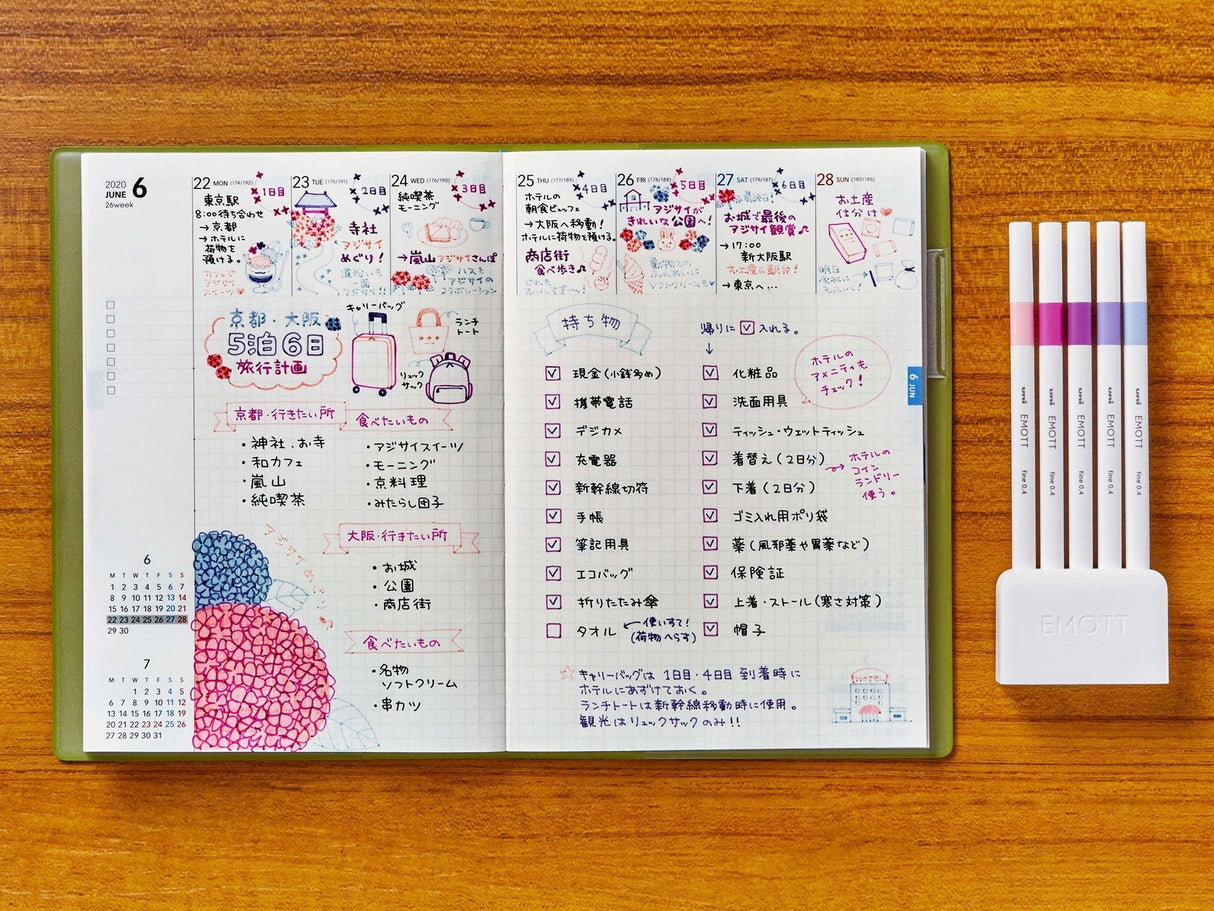 2020
JUNE
6
26week
22 MON (174/192)
1日目
東京駅
8:00待ち合わせ
→京都
→ホテルに
荷物を
預ける。
23 TUE (175/191)
2日目
寺社
アジサイ
めぐり!
24 WED (176/190)
純喫茶
モーニング
3日目
→嵐山アジサイさんぽ
バスと
アジサイの
25 THU (177/189)
4日目
ホテルの
朝食ビュッフェ
→大阪へ移動!
ホテルに荷物を預ける。
商店街
食べ歩き♪
26 FRI (178/188)
5日目
アジサイが
きれいな公園へ!
動物との
ソフトクリームも
27 SAT (179/187)
6日目
お城で最後の
アジサイ観賞♪
→17:00
新大阪駅
→東京へ…
28 SUN (180/186)
お土産
仕分け
京都・大阪
5泊6日
旅行計画
キャリーバッグ
ランチ
トート
リュック
サック
京都・行きたい所
・神社、お寺
・和カフェ
・嵐山
・純喫茶
食べたいもの
・アジサイスイーツ
・モーニング
・京料理
・みたらし団子
アジサイめぐり
大阪・行きたい所
・お城
・公園
・商店街
食べたいもの
・名物
ソフトクリーム
・串カツ
6
M T W T F S S
1 2 3 4 5 6 7
8 9 10 11 12 13 14
15 16 17 18 19 20 21
22 23 24 25 26 27 28
29 30
7
M T W T F S S
1 2 3 4 5
6 7 8 9 10 11 12
13 14 15 16 17 18 19
20 21 22 23 24 25 26
27 28 29 30 31
持ち物
帰りに☑入れる。
↓
☑ 現金(小銭多め)
☑ 携帯電話
☑ デジカメ
☑ 充電器
☑ 新幹線切符
☑ 手帳
☑ 筆記用具
☑ エコバッグ
☑ 折りたたみ傘
☐ タオル ← 使いすて!
(荷物へらす)
☑ 化粧品
☑ 洗面用具
☑ ティッシュ・ウェットティッシュ
☑ 着替え(2日分)
☑ 下着(2日分)
☑ ゴミ入れ用ポリ袋
☑ 薬(風邪薬や胃薬など)
☑ 保険証
☑ 上着・ストール(寒さ対策)
☑ 帽子
ホテルの
アメニティも
チェック!
ホテルの
コイン
ランドリー
使う。
☆キャリーバッグは1日目・4日目到着時に
ホテルにあずけておく。
ランチトートは新幹線移動時に使用。
観光はリュックサックのみ!!
HOTEL
6 JUN
uni EMOTT fine 0.4
uni EMOTT fine 0.4
uni EMOTT fine 0.4
uni EMOTT fine 0.4
uni EMOTT fine 0.4
EMOTT